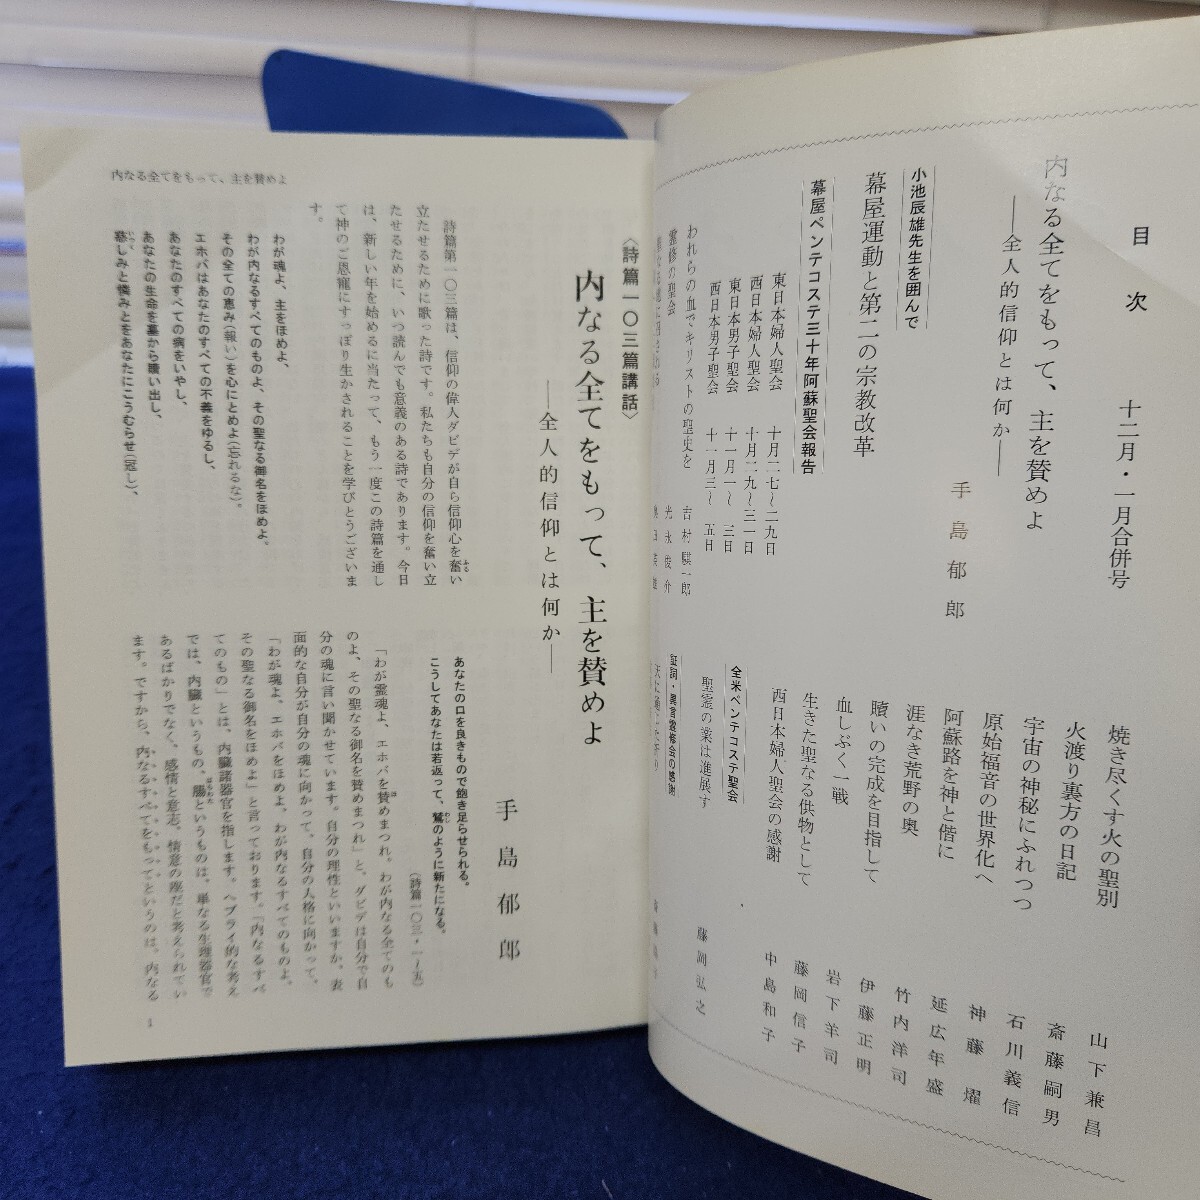 目次
十二月・一月合併号
内なる全てをもって、主を賛めよ
――全人的信仰とは何か――
手島郁郎
小池辰雄先生を囲んで
幕屋運動と第二の宗教改革
幕屋ペンテコステ三十年阿蘇聖会報告
東日本婦人聖会 十月二七~二九日
西日本婦人聖会 十月二九~三一日
東日本男子聖会 十一月一~三日
西日本男子聖会 十一月三~五日
われらの血でキリストの聖史を 吉村騏一郎
霊修の聖会 光永俊介
焼き尽くす火の聖別 山下兼昌
火渡り裏方の日記 斎藤嗣男
宇宙の神秘にふれつつ 石川義信
原始福音の世界化へ 神藤燿
阿蘇路を神と偕に 延広年盛
涯なき荒野の奥 竹内洋司
贖いの完成を目指して 伊藤正明
血しぶく一戦 岩下羊司
生きた聖なる供物として 藤岡信子
西日本婦人聖会の感謝 中島和子
全米ペンテコステ聖会
聖霊の業は進展す 藤岡弘之
証詞・異言霊修会の感謝
内なる全てをもって、主を賛めよ
〈詩篇一〇三篇講話〉
内なる全てをもって、主を賛めよ
――全人的信仰とは何か――
手島郁郎
詩篇第一〇三篇は、信仰の偉人ダビデが自ら信仰心を奮い
立たせるために歌った詩です。私たちも自分の信仰を奮い立
たせるために、いつ読んでも意義のある詩であります。今日
は、新しい年を始めるに当たって、もう一度この詩篇を通し
て神のご恩寵にすっぽり生かされることを学びとうございま
す。
わが魂よ、主をほめよ、
わが内なるすべてのものよ、その聖なる御名をほめよ。
その全ての恵み(報い)を心にとめよ(忘れるな)。
エホバはあなたのすべての不義をゆるし、
あなたのすべての病をいやし、
あなたの生命を墓から贖い出し、
慈しみと憐みとをあなたにこうむらせ(冠し)、
あなたの口を良きもので飽き足らせられる。
こうしてあなたは若返って、鷲のように新たになる。
(詩篇一〇三・一~五)
「わが霊魂よ、エホバを賛めまつれ。わが内なる全てのも
のよ、その聖なる御名を賛めまつれ」と、ダビデは自分で自
分の魂に言い聞かせています。自分の理性といいますか、表
面的な自分が自分の魂に向かって、自分の人格に向かって、
「わが魂よ、エホバをほめよ、わが内なるすべてのものよ。
その聖なる御名をほめよ」と言っております。「内なるすべ
てのもの」とは、内臓諸器官を指します。ヘブライ的な考え
では、内臓というもの、腸というものは、単なる生理器官で
あるばかりでなく、感情と意志、情意の座だと考えられてい
ます。ですから、内なるすべてをもってというのは、内なる
1